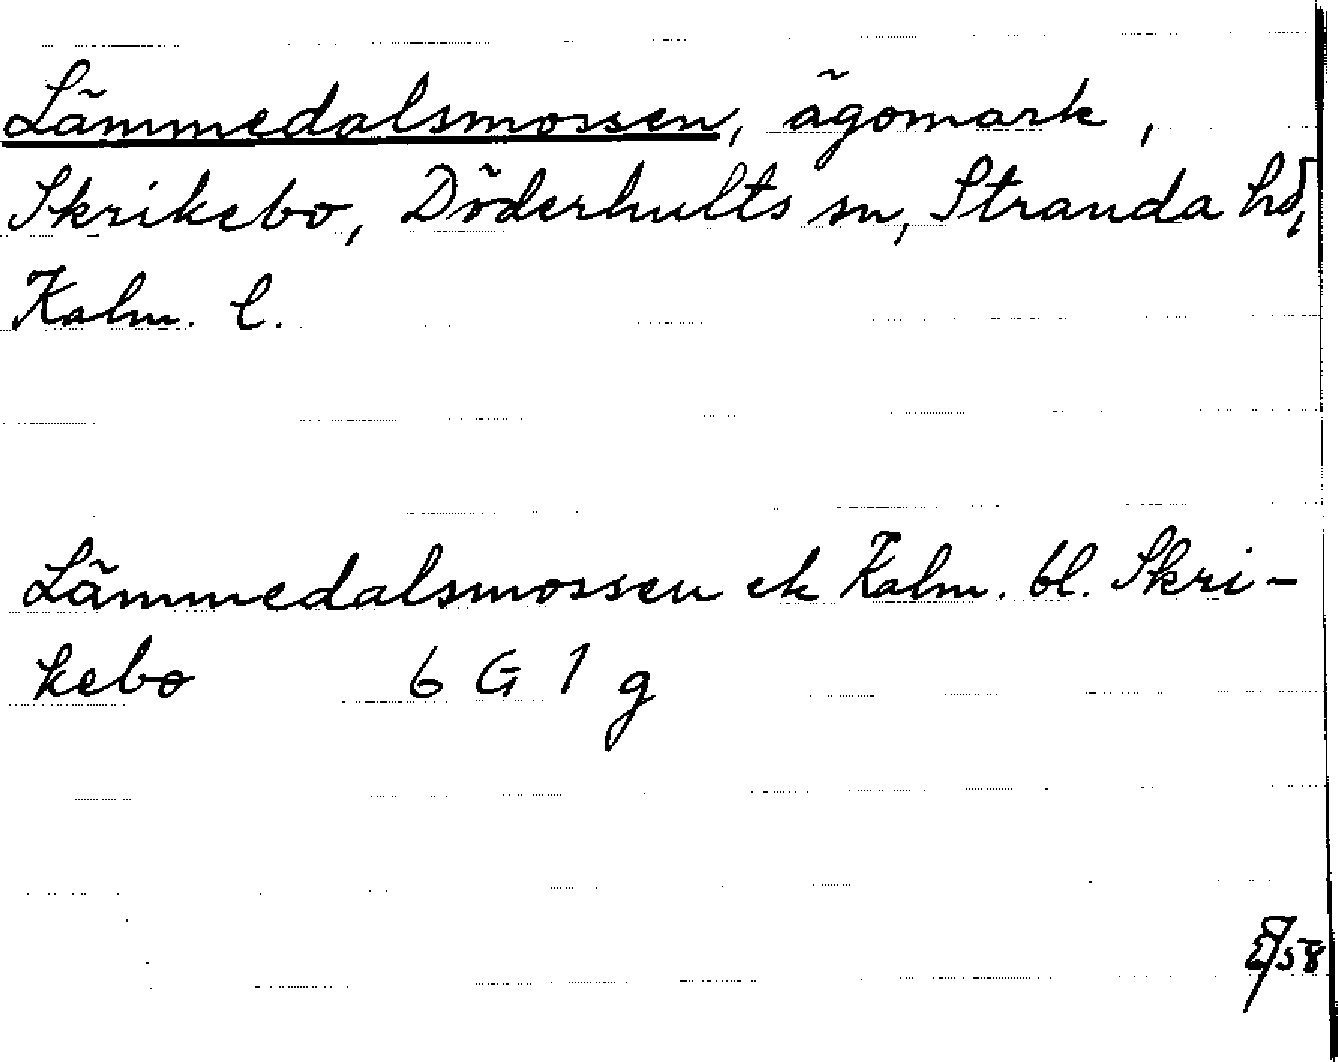 Lämmedalsmossen, ägomark,
Skrikebo, Döderhults sn, Stranda hd,
Kalm. l.
Lämmedalsmossen ek Kalm. bl. Skri-
kebo 6 G 1 g
58